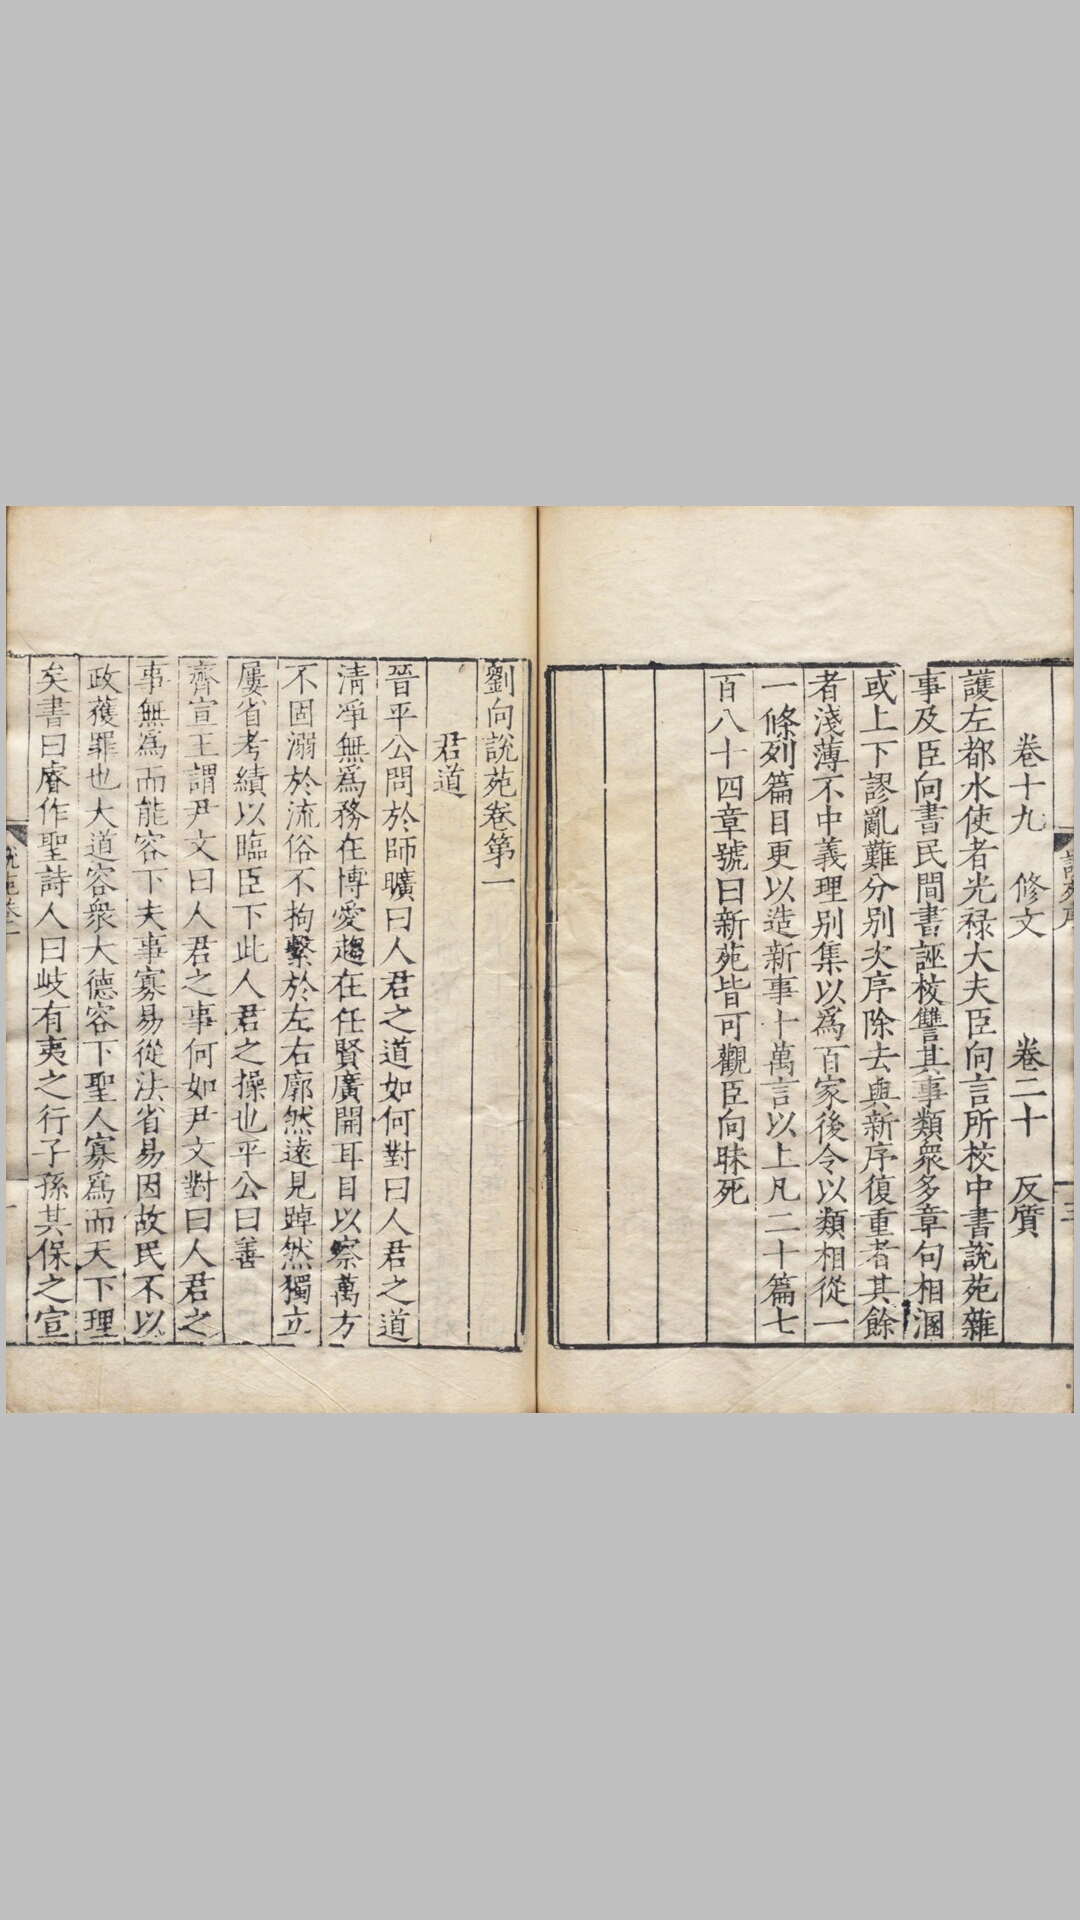 卷十九 修文 卷二十 反質
護左都水使者光禄大夫臣向言所校中書說苑雜
事及臣向書民間書誣校讐其事類衆多章句相溷
或上下謬亂難分别次序除去與新序復重者其餘
者淺薄不中義理别集以爲百家後令以類相從一
一條列篇目更以造新事十萬言以上凡二十篇七
百八十四章號曰新苑皆可觀臣向昧死
劉向說苑卷第一
君道
晉平公問於師曠曰人君之道如何對曰人君之道
清凈無爲務在博愛趨在任賢廣開耳目以察萬方
不固溺於流俗不拘繫於左右廓然遠見踔然獨立
屢省考績以臨臣下此人君之操也平公曰善
齊宣王謂尹文曰人君之事何如尹文對曰人君之
事無爲而能容下夫事寡易從法省易因故民不以
政蒦罪也大道容衆大德容下聖人寡爲而天下理
矣書曰睿作聖詩人曰岐有夷之行子孫其保之宣